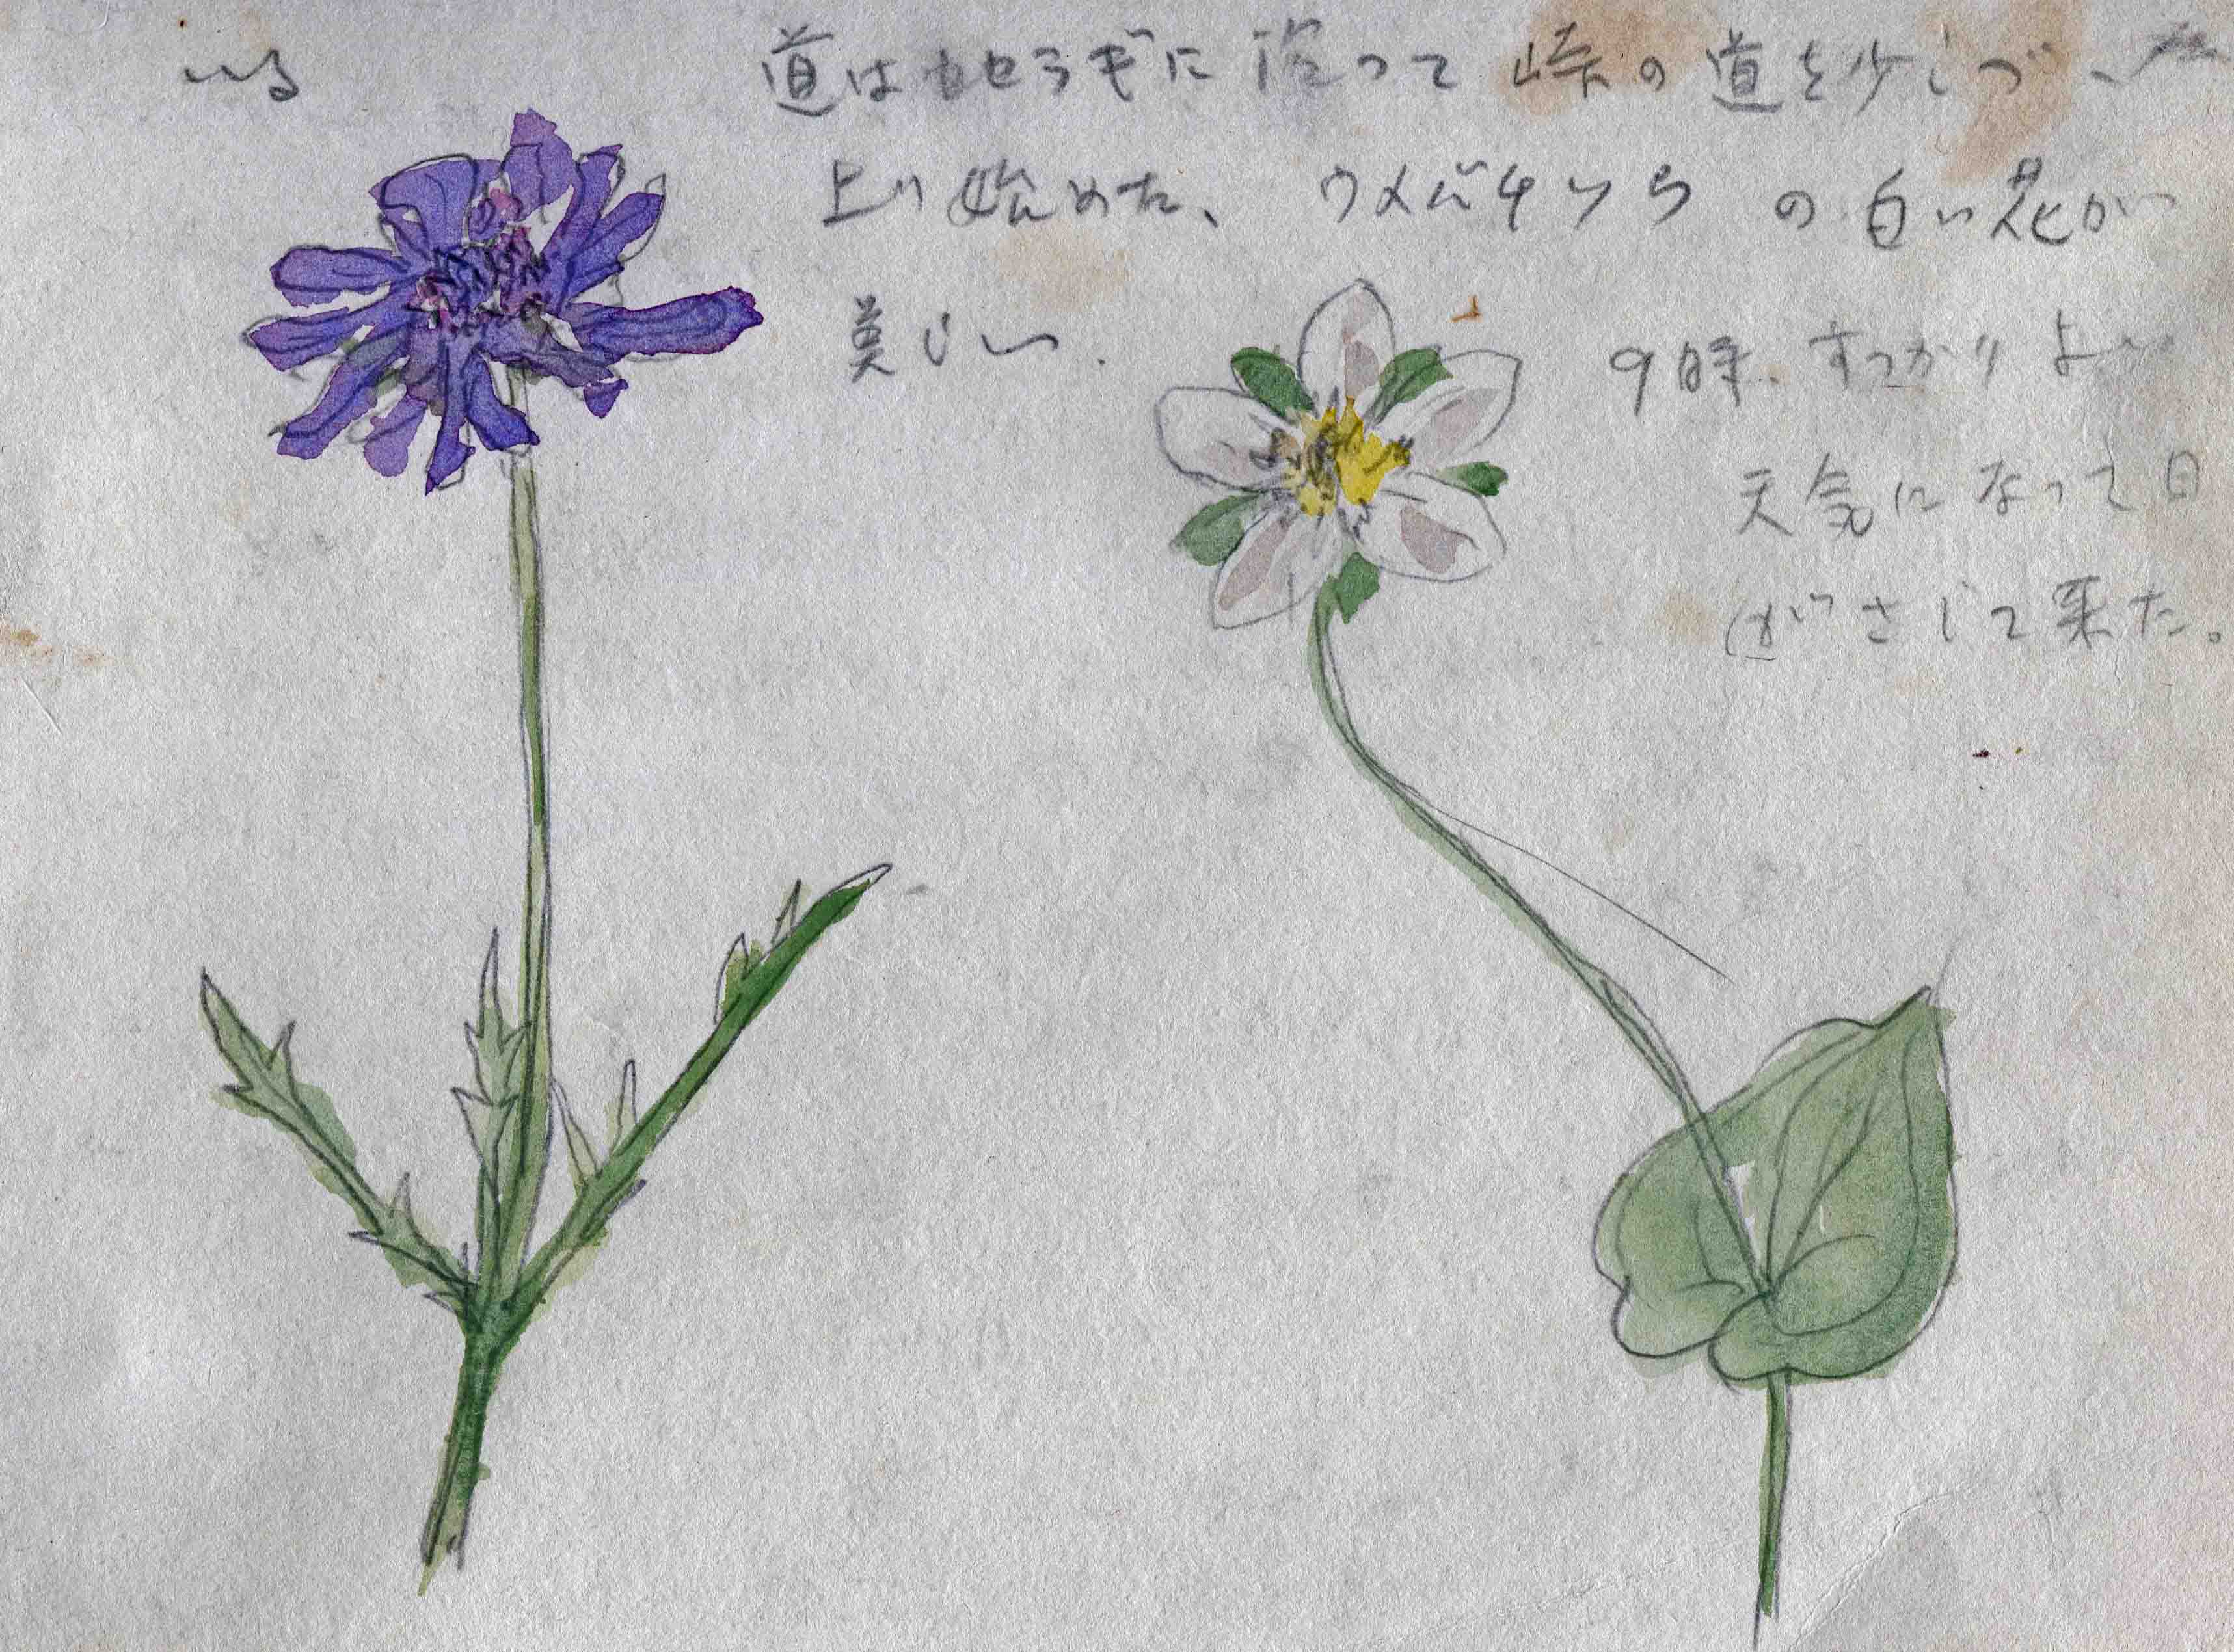 いる
道はセセラギに沿って峠の道を少しづゝ
上り始めた、ウメバチソウの白い花が
美しい.
9時、すっかりよい
天気になって日
がさして来た。